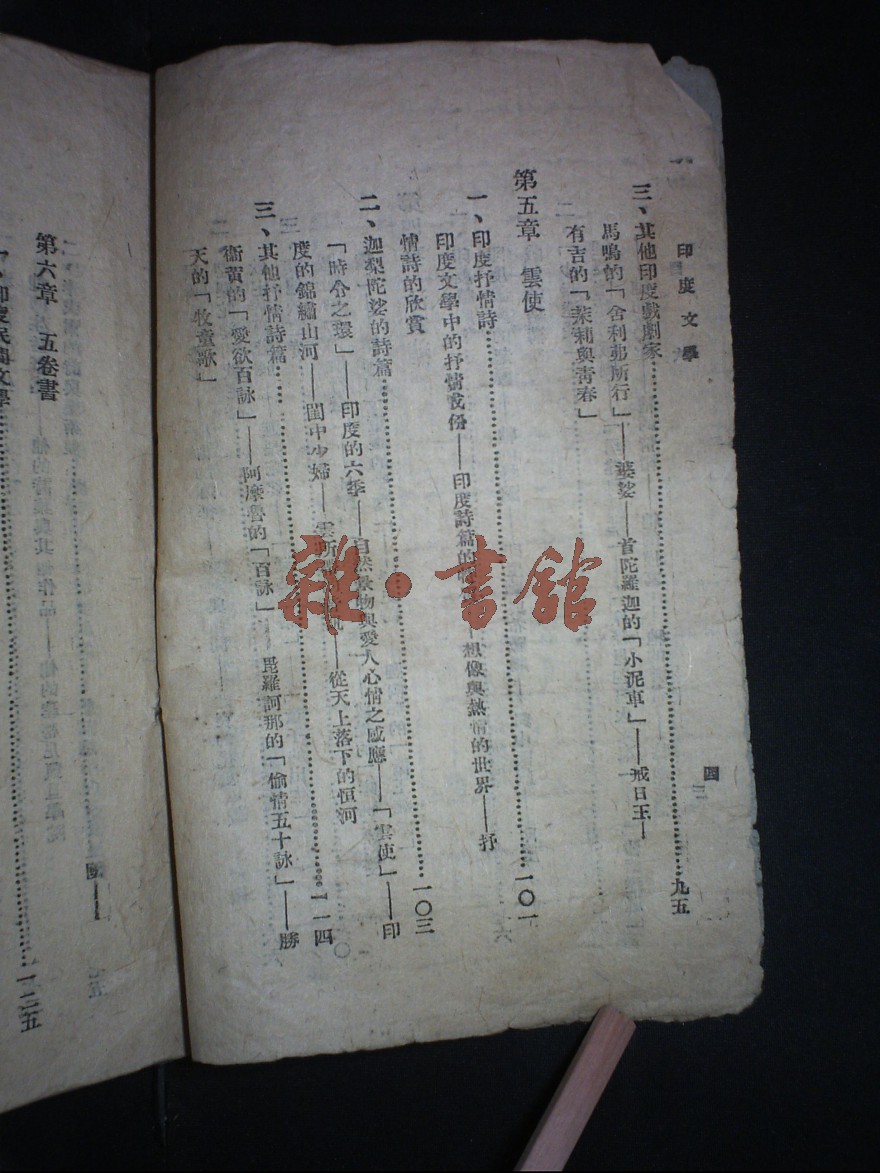 印度文學
四
三、其他印度戲劇家……九五
馬鳴的「舍利弗所行」——婆娑——首陀羅迦的「小泥車」——戒日王——
有吉的「茉莉與青春」
第五章 雲使
一、印度抒情詩……一〇一
印度文學中的抒情成份——印度詩篇的——想像與熱情的世界——抒
情詩的欣賞
二、迦梨陀娑的詩篇……一〇三
「時令之環」——印度的六季——自然景物與愛人心情之感應——「雲使」——印
度的錦繡山河——閨中少婦——雲所——從天上落下的恒河
三、其他抒情詩篇……一一四
衞黃的「愛欲百詠」——阿摩魯的「百詠」——毘羅訶那的「偷情五十詠」——勝
天的「牧童歌」
第六章 五卷書
一、印度民間文學……一二五
雜·書館